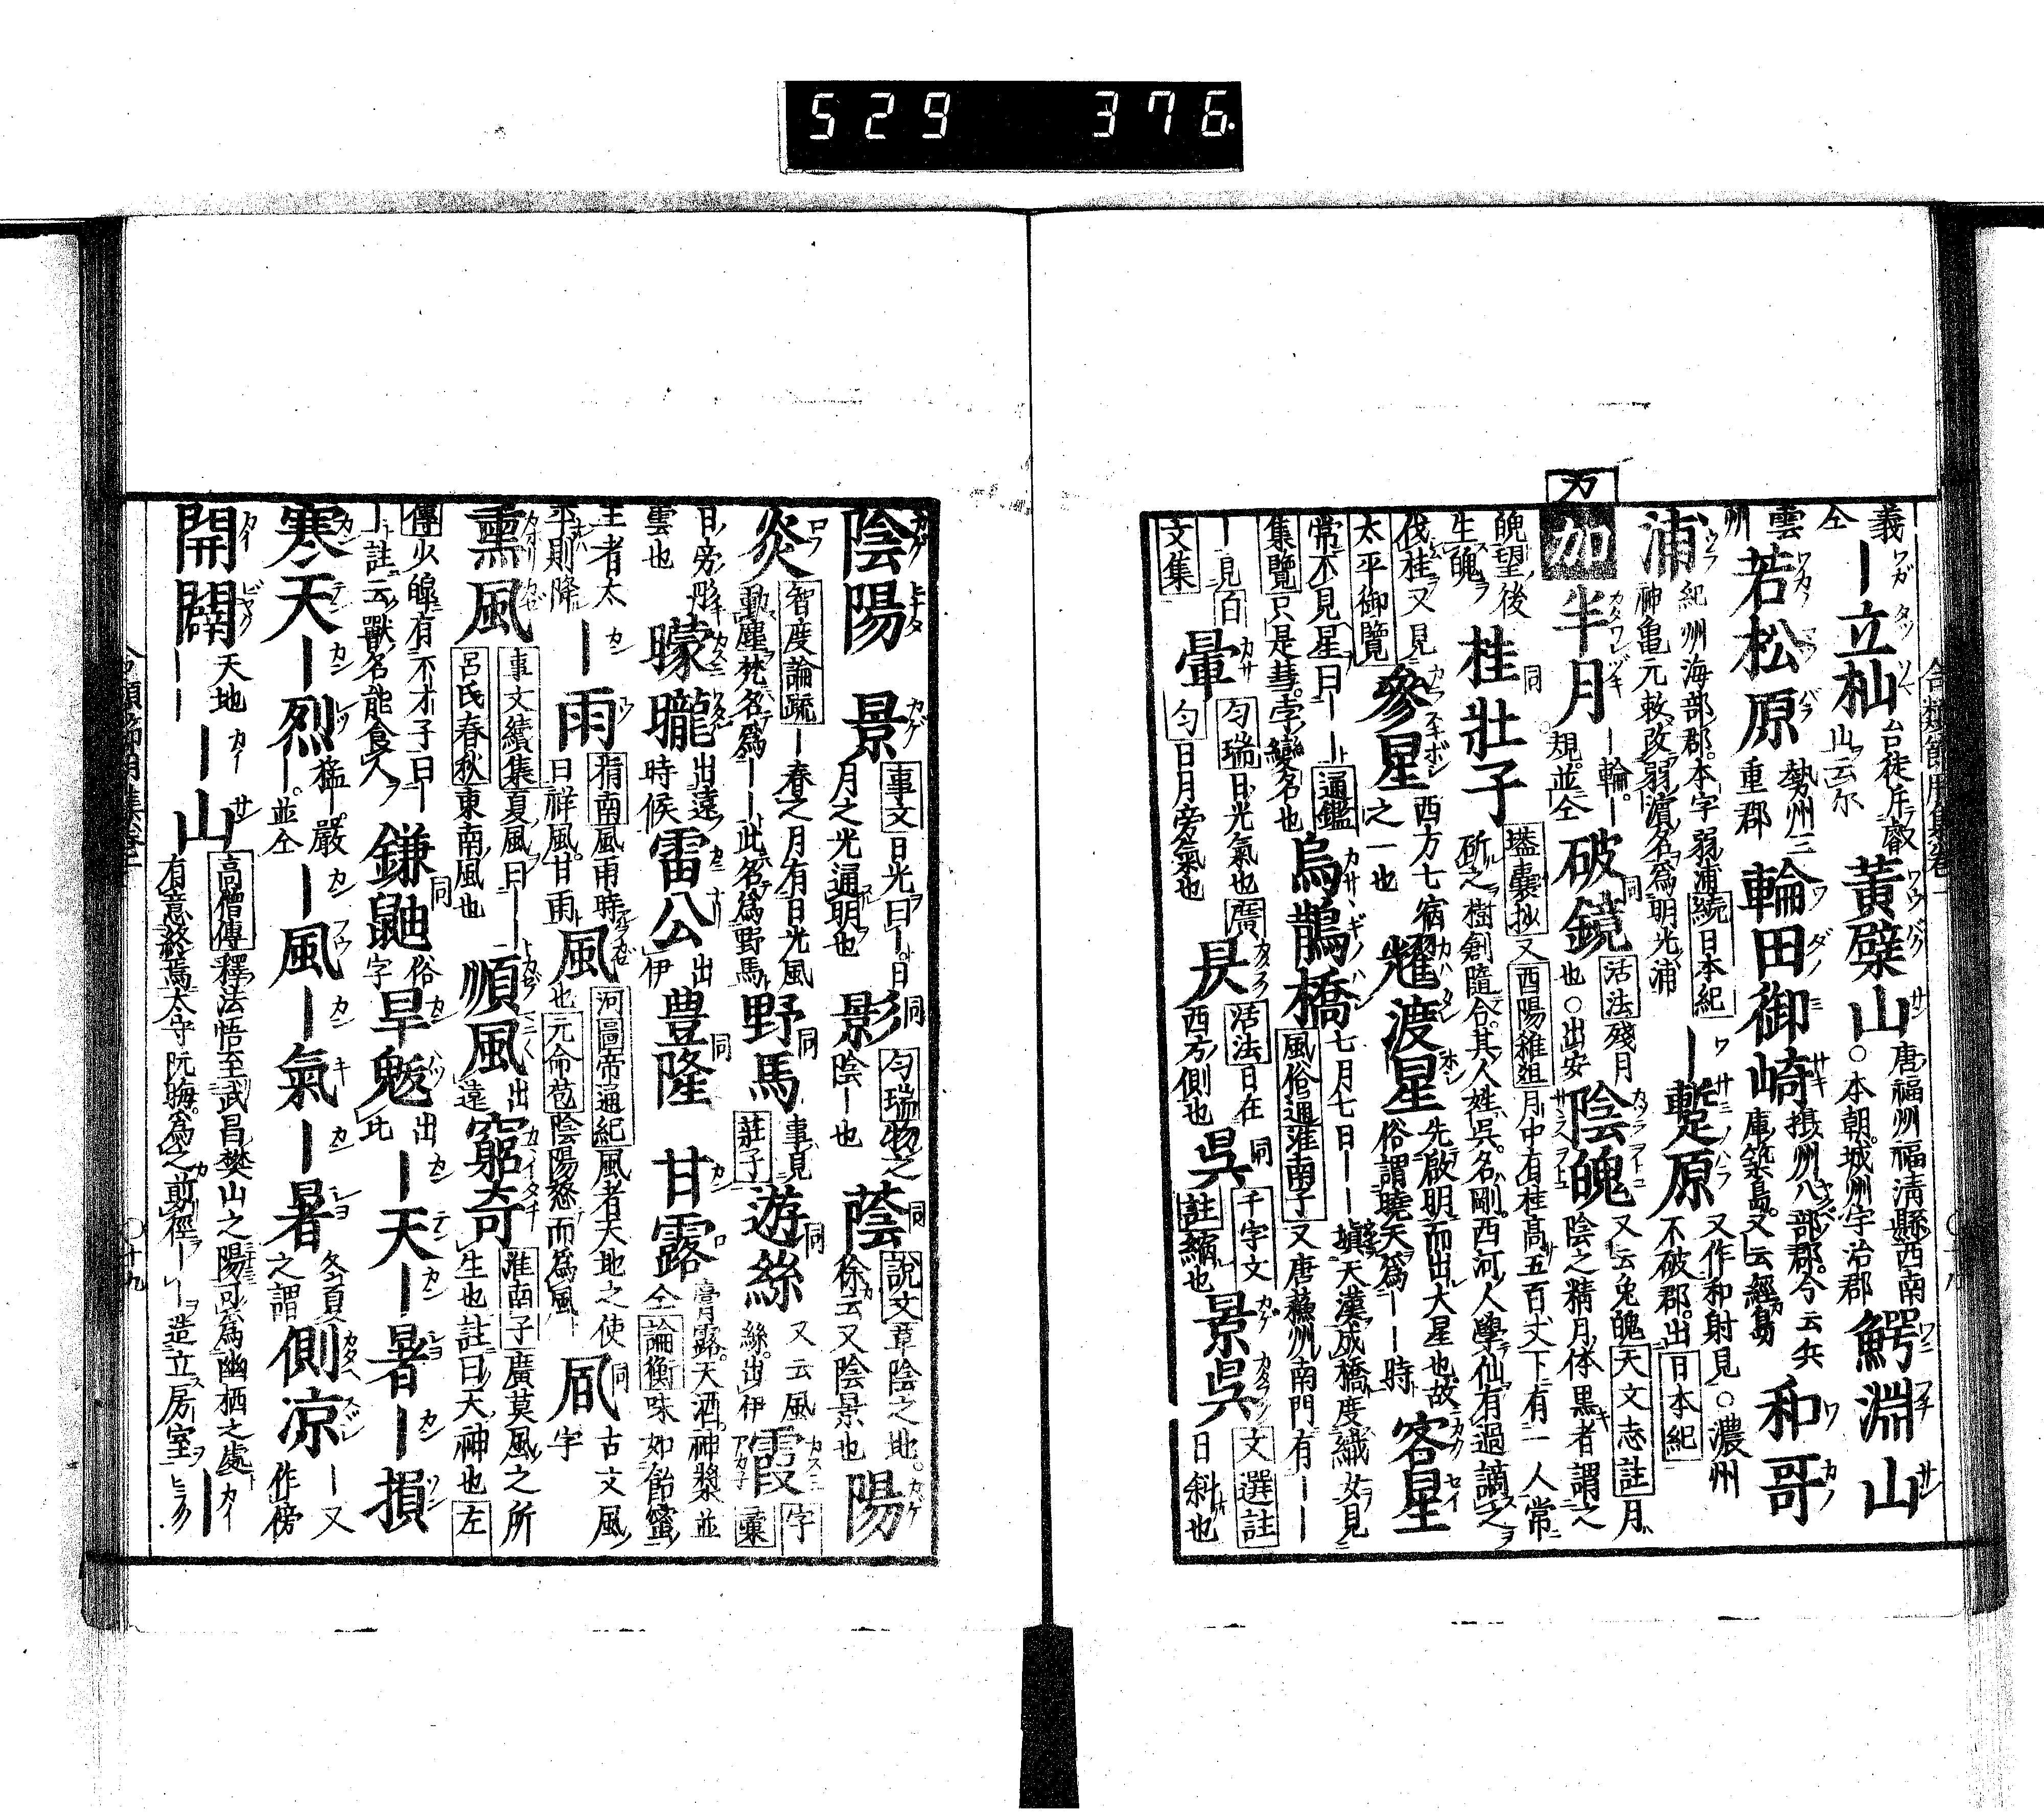 529 376.
合類節用集卷一
義
仝 ー立杣 台徒斤 山云尓 黄檗山 唐福州福清縣西南 ○本朝城州宇治郡 鰐淵山
雲州 若松原 勢州三重郡 輪田御崎 摂州八部郡今云兵庫築島又云經島 和哥
浦 紀州海部郡本字弱浦 続日本紀 神亀元敕改弱濱名為明光浦 ー蹔原 又作和射見○濃州不破郡出 日本紀
カ
加 半月 ー輪 規並仝 破鏡 活法 残月也○出安 陰魄 又云兎魄 天文志註 月陰之精月体黒者謂之
魄望後生魄 桂壮子 壒嚢抄 又 酉陽雑俎 月中有桂高五百丈下有一人常斫之樹創隨合其人姓呉名剛西河人學仙有過謫之
伐桂又見 太平御覽 參星 西方七宿之一也 檋渡星 先啟明而出大星也故俗謂曉天為ーー時 客星
常不見星曰ーー 通鑑集覽 只是彗孛變名也 烏鵲橋 風俗通 淮南子 七月七日ーー填天漢成橋度織女見 又唐蘓州南門有ーー
ー見 白文集 暈 匀瑞 日光氣也 廣匀 日月旁氣也 昃 活法 日在西方側也 吳 千字文註 縮也 景吳 文選註 日斜也
陰陽 景 事文 日光曰ー日月之光通明也 影 匀瑞 物之陰ー也 蔭 説文 章陰之地 徐云又陰景也 陽
炎 智度論疏 ー春之月有日光風動塵梵名為ーー此名為野馬 野馬 事見 莊子 遊絲 又云風絲出伊 霞 字彙
日旁彤雲也 曚曨 出遠時候 雷公 出伊 豊隆 甘露 膏露天酒神漿並仝 論衡 味如飴蜜
王者太平則降 ー雨 指南 風雨時曰祥風甘雨 風 河圖帝通紀 風者天地之使也 元命苞 陰陽怒而為風 凮 古文風字
薰風 事文續集 夏風曰ーー 呂氏春秋 東南風也 順風 出遠 窮奇 淮南子 廣莫風之所生也註曰天神也 左
傳 少皥有不才子曰ーー註云獸名能食人 鎌鼬 俗字 旱魃 出此 ー天 ー暑 ー損
寒天 ー烈 ー嚴 ー並仝 ー風 ー氣 ー暑 冬夏之謂 側凉 ー又作傍
開闢 天地ーー ー山 高僧傳 釋法悟至武昌樊山之陽可為幽栖之處有意終焉太守阮晦為之剪徑ーー造立房室 ー
合類節用集卷一
○十九